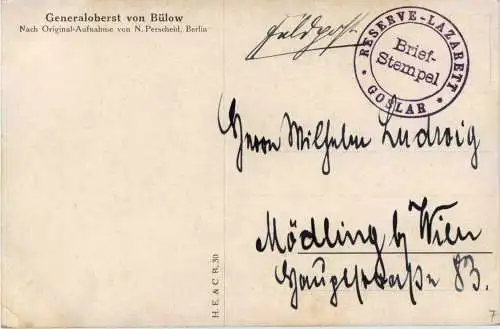 Generaloberst von Bülow
Nach Original-Aufnahme von N. Perscheid, Berlin
Feldpost
RESERVE-LAZARETT
Brief-
Stempel
GOSLAR
Herrn Wilhelm Ludwig
Mödling b/ Wien
Hauptstraße 83.
H. E. & C. B. 30
7